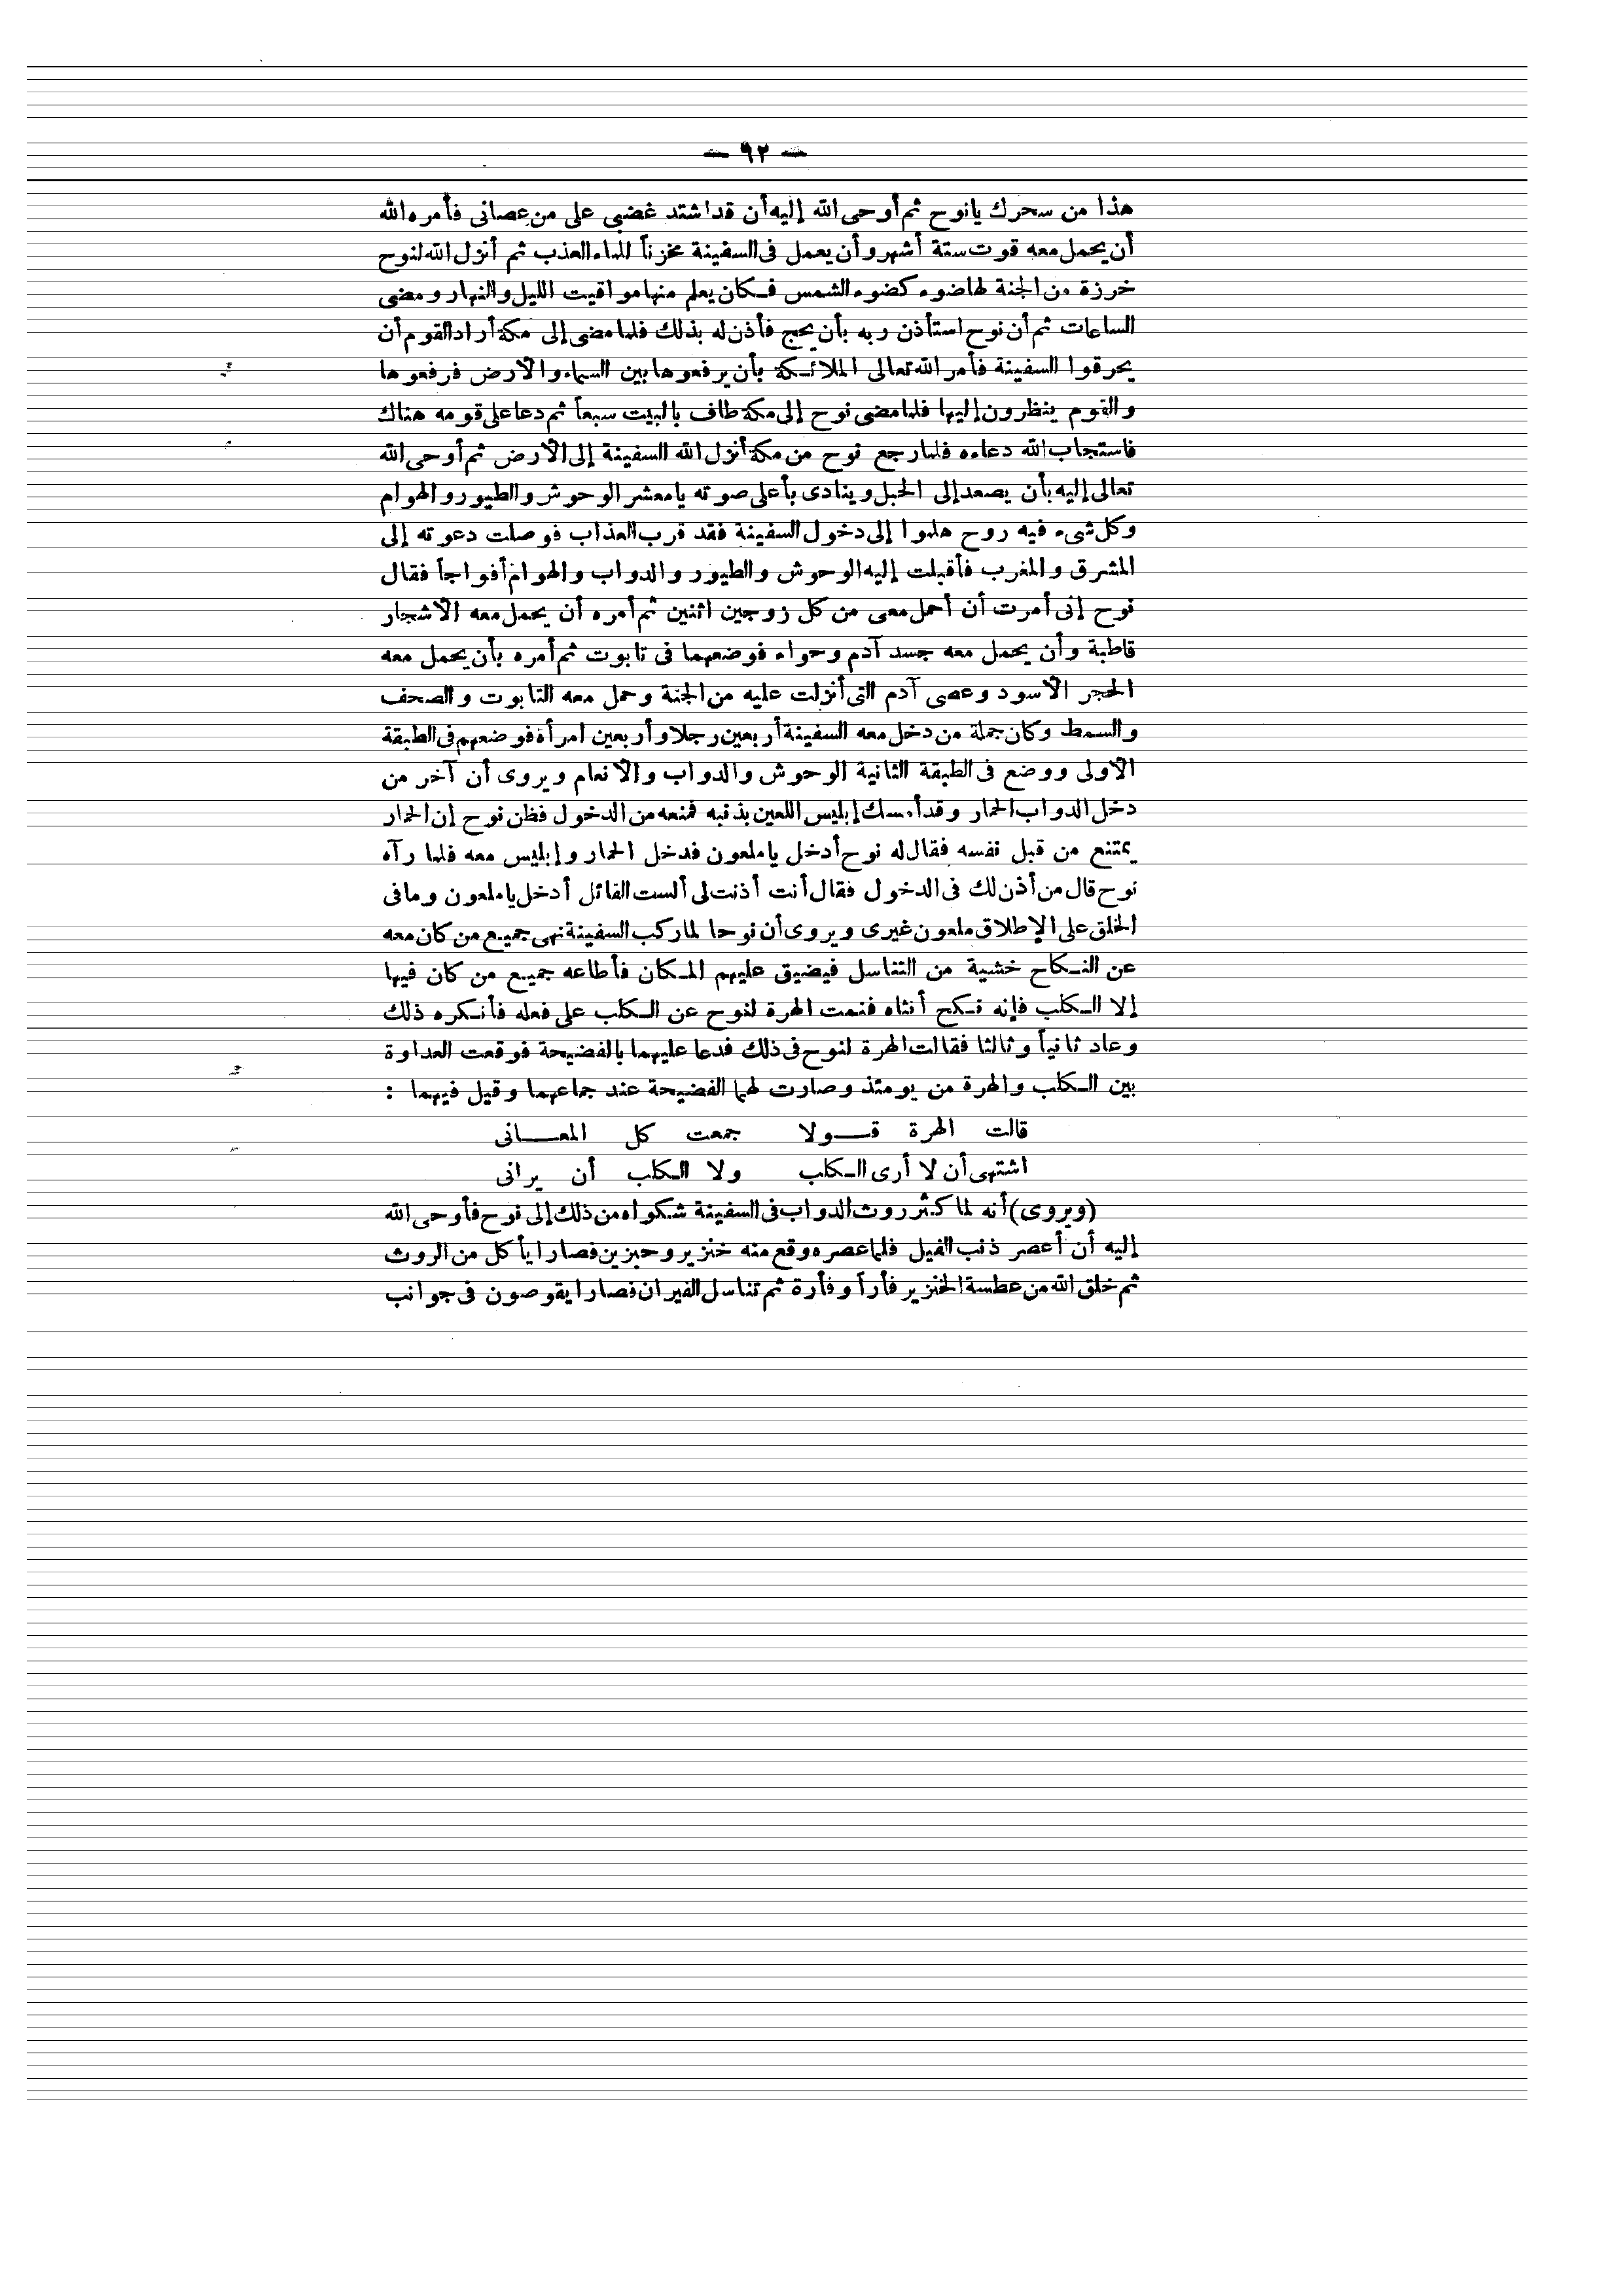 — ٩٢ —
هذا من سحرك يانوح ثم أوحى الله إليه أن قد اشتد غضبى على من عصانى فأمره الله
أن يحمل معه قوت ستة أشهر وأن يعمل فى السفينة مخزناً للماء العذب ثم أنزل الله لنوح
خرزة من الجنة لها ضوء كضوء الشمس فكان يعلم منها مواقيت الليل والنهار ومضى
الساعات ثم أن نوح استأذن ربه بأن يحج فأذن له بذلك فلما مضى إلى مكة أراد القوم أن
يحرقوا السفينة فأمر الله تعالى الملائكة بأن يرفعوها بين السماء والأرض فرفعوها
والقوم ينظرون إليها فلما مضى نوح إلى مكة طاف بالبيت سبعاً ثم دعا على قومه هناك
فاستجاب الله دعاءه فلما رجع نوح من مكة أنزل الله السفينة إلى الأرض ثم أوحى الله
تعالى إليه بأن يصعد إلى الجبل وينادى بأعلى صوته يا معشر الوحوش والطيور والهوام
وكل شىء فيه روح هلموا إلى دخول السفينة فقد قرب العذاب فوصلت دعوته إلى
المشرق والمغرب فأقبلت إليه الوحوش والطيور والدواب والهوام أفواجاً فقال
نوح إنى أمرت أن أحمل معى من كل زوجين اثنين ثم أمره أن يحمل معه الأشجار
قاطبة وأن يحمل معه جسد آدم وحواء فوضعهما فى تابوت ثم أمره بأن يحمل معه
الحجر الأسود وعصى آدم التى أنزلت عليه من الجنة وحمل معه التابوت والصحف
والسمط وكان جملة من دخل معه السفينة أربعين رجلا وأربعين امرأة فوضعهم فى الطبقة
الاولى ووضع فى الطبقة الثانية الوحوش والدواب والانعام ويروى أن آخر من
دخل الدواب الحمار وقد أمسك إبليس اللعين بذنبه فمنعه من الدخول فظن نوح إن الحمار
يمتنع من قبل نفسه فقال له نوح أدخل يا ملعون فدخل الحمار وإبليس معه فلما رآه
نوح قال من أذن لك فى الدخول فقال أنت أذنت لى ألست القائل أدخل يا ملعون وما فى
الخلق على الإطلاق ملعون غيرى ويروى أن نوحا لما ركب السفينة نهى جميع من كان معه
عن النكاح خشية من التناسل فيضيق عليهم المكان فأطاعه جميع من كان فيها
إلا الكلب فإنه نكح أنثاه فنمت الهرة لنوح عن الكلب على فعله فأنكره ذلك
وعاد ثانياً وثالثا فقالت الهرة لنوح فى ذلك فدعا عليهما بالفضيحة فوقعت العداوة
بين الكلب والهرة من يومئذ وصارت لهما الفضيحة عند جماعهما وقيل فيهما :
قالت الهرة قـولا جمعت كل المعـانى
اشتهى أن لا أرى الكلب ولا الكلب أن يرانى
(ويروى) أنه لما كثر روث الدواب فى السفينة شكواه من ذلك إلى نوح فأوحى الله
إليه أن أعصر ذنب الفيل فلما عصره وقع منه خنزير وحبزين فصارا يأكل من الروث
ثم خلق الله من عطسة الخنزير فأراً وفأرة ثم تناسل الفيران فصارا يقوصون فى جوانب